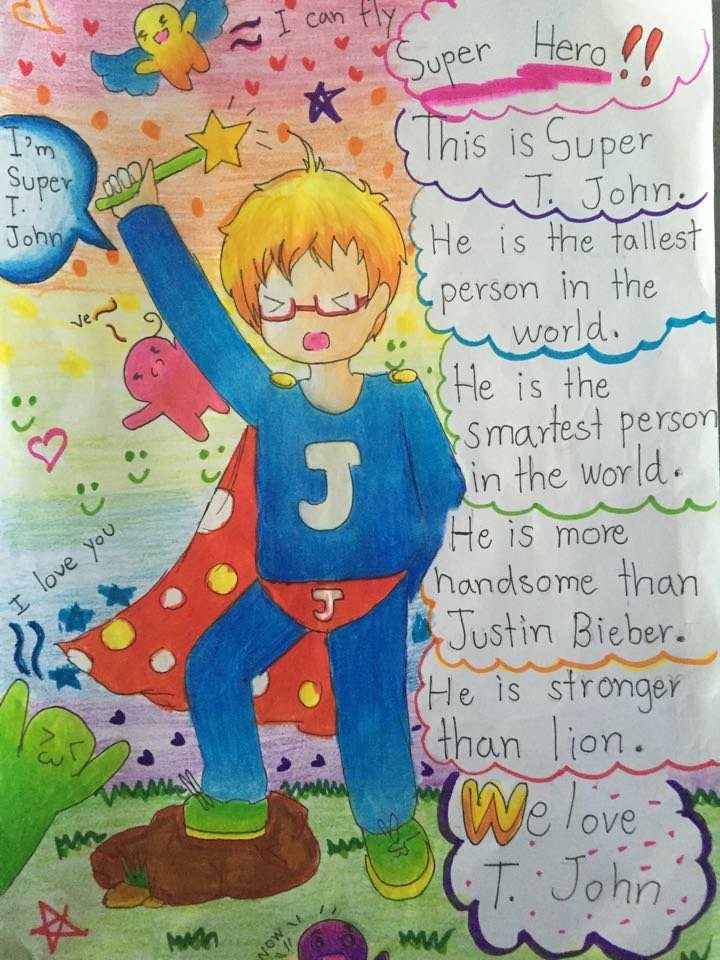 I can fly
Super Hero!!
I'm
Super
T.
John
This is Super
T. John.
He is the tallest
person in the
world.
ye
He is the
smartest person
in the world.
J
I love you
He is more
handsome than
Justin Bieber.
J
He is stronger
than lion.
We love
T. John
wow